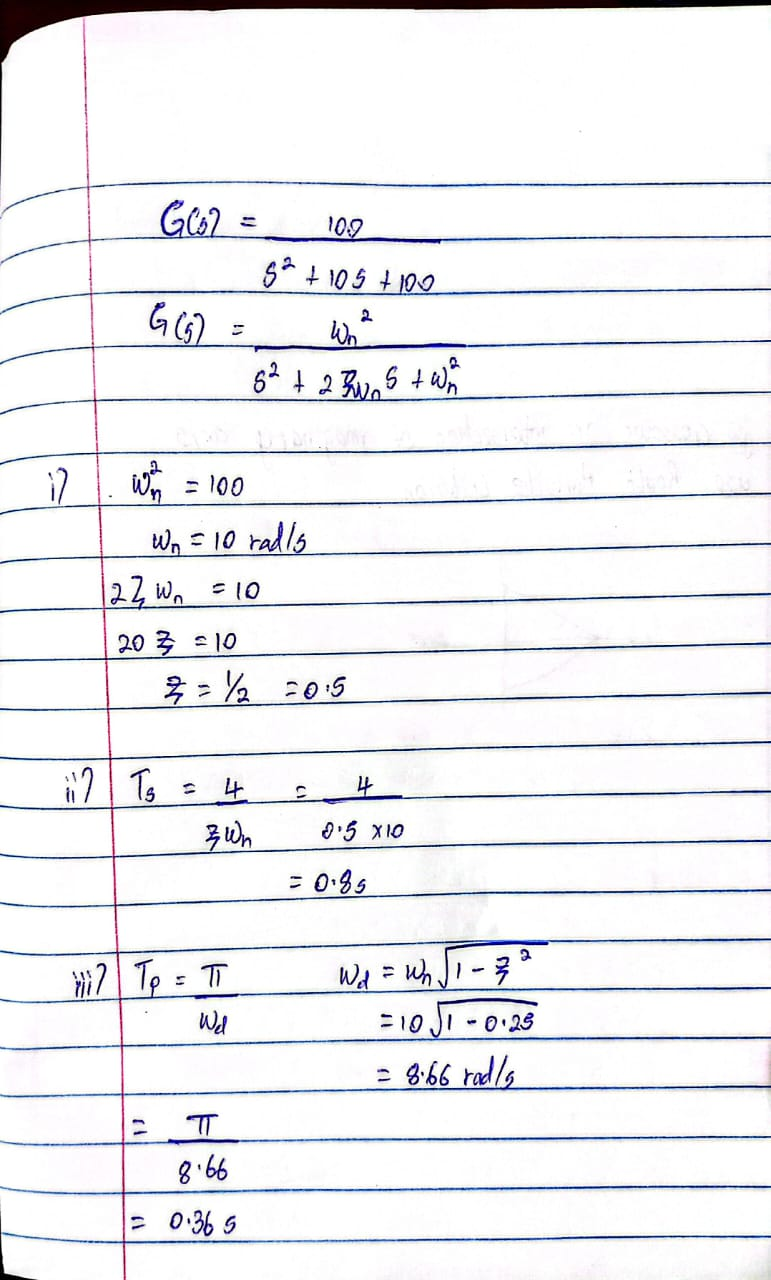 G(s) = 100
s² + 10s + 100
G(s) = ωn²
s² + 2ξωn s + ωn²
i) ωn² = 100
ωn = 10 rad/s
2ξωn = 10
20ξ = 10
ξ = 1/2 = 0.5
ii) Ts = 4 = 4
ξωn 0.5 x10
= 0.8s
iii) Tp = π ωd = ωn√1 - ξ²
ωd = 10√1 - 0.25
= 8.66 rad/s
= π
8.66
= 0.36 s